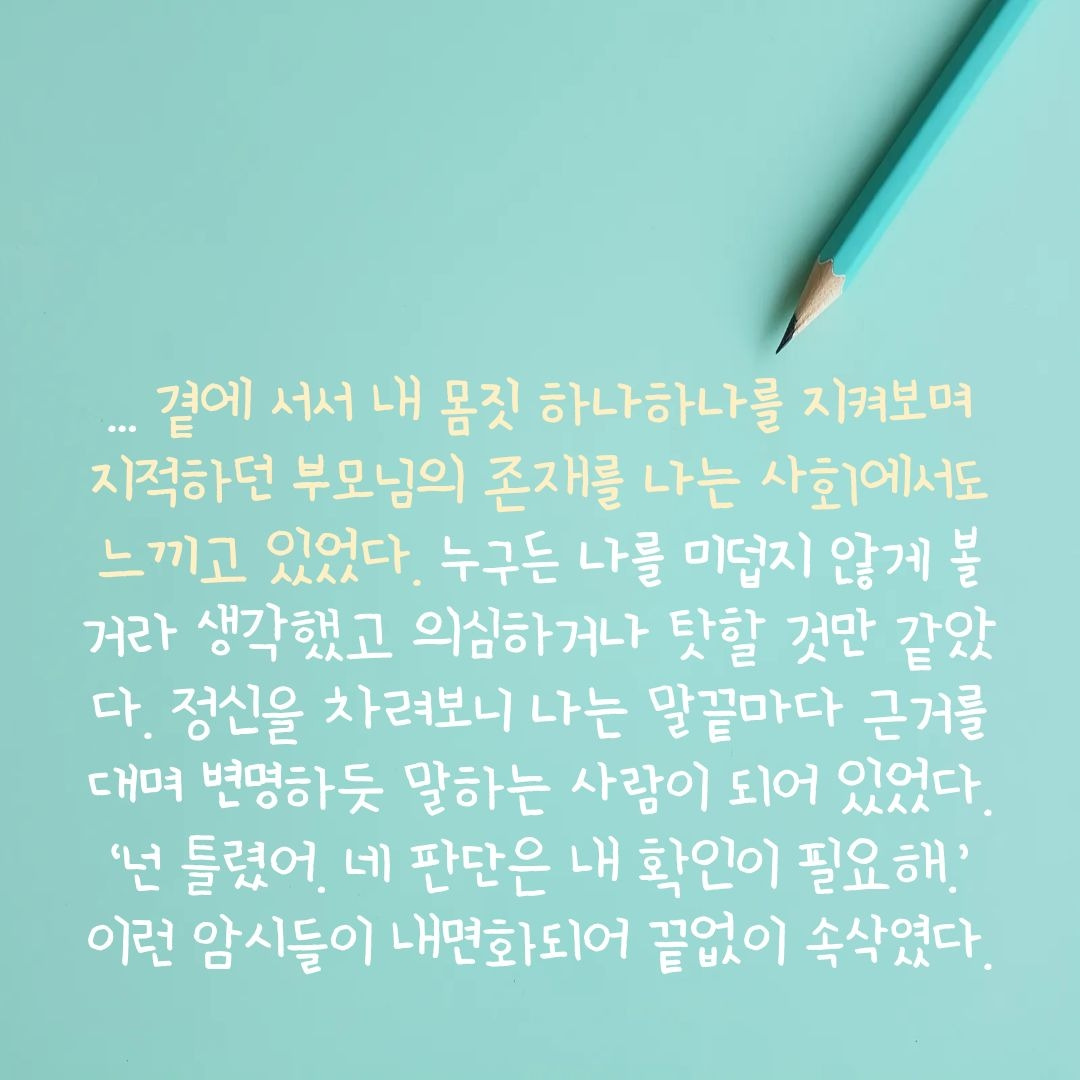 ... 곁에 서서 내 몸짓 하나하나를 지켜보며
지적하던 부모님의 존재를 나는 사회에서도
느끼고 있었다. 누구든 나를 미덥지 않게 볼
거라 생각했고 의심하거나 탓할 것만 같았
다. 정신을 차려보니 나는 말끝마다 근거를
대며 변명하듯 말하는 사람이 되어 있었다.
‘넌 틀렸어. 네 판단은 내 확인이 필요해.’
이런 암시들이 내면화되어 끝없이 속삭였다.